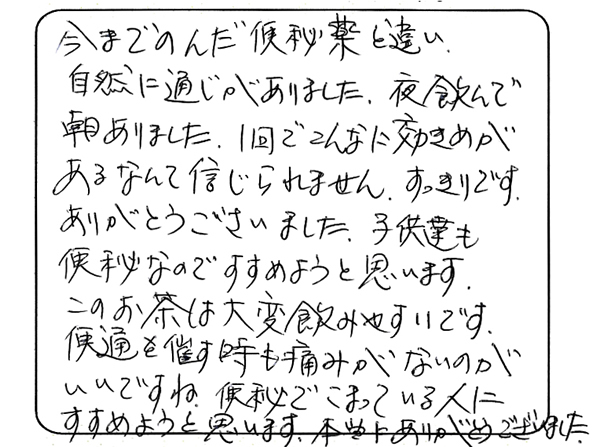 今までのんだ便秘薬と違い、
自然に通じがありました。夜飲んで
朝ありました。1回でこんなに効きめが
あるなんて信じられません。すっきりです。
ありがとうございました。子供達も
便秘なのですすめようと思います。
このお茶は大変飲みやすいです。
便通を催す時も痛みがないのが
いいですね。便秘でこまっている人に
すすめようと思います。本当にありがとうございました。